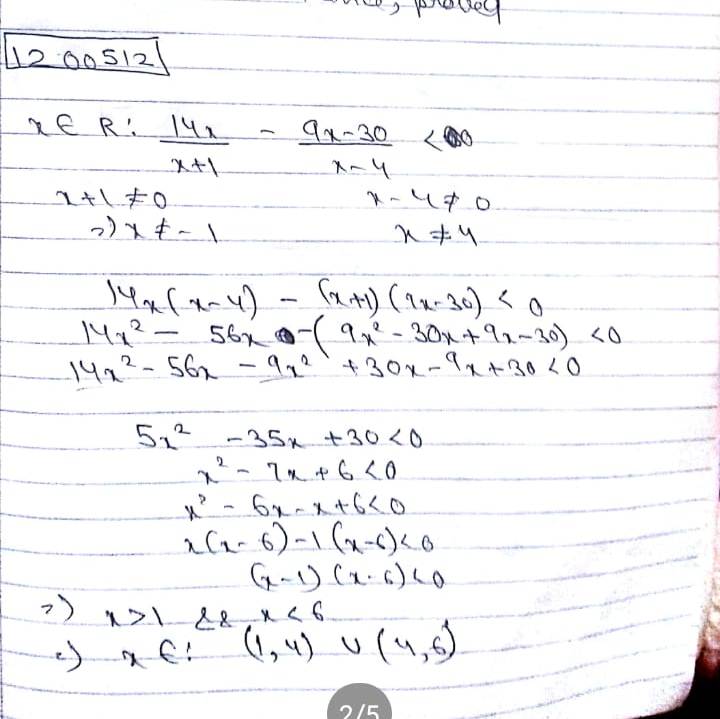 proved
1200512
x ∈ R: 14x/x+1 - 9x-30/x-4 < 0
x+1 ≠ 0 x-4 ≠ 0
=) x ≠ -1 x ≠ 4
14x(x-4) - (x+1)(9x-30) < 0
14x² - 56x -(9x² - 30x + 9x - 30) < 0
14x² - 56x - 9x² + 30x - 9x + 30 < 0
5x² - 35x + 30 < 0
x² - 7x + 6 < 0
x² - 6x - x + 6 < 0
x(x-6) - 1(x-6) < 0
(x-1)(x-6) < 0
=) x > 1 && x < 6
=) x ∈: (1,4) ∪ (4,6)
2/5